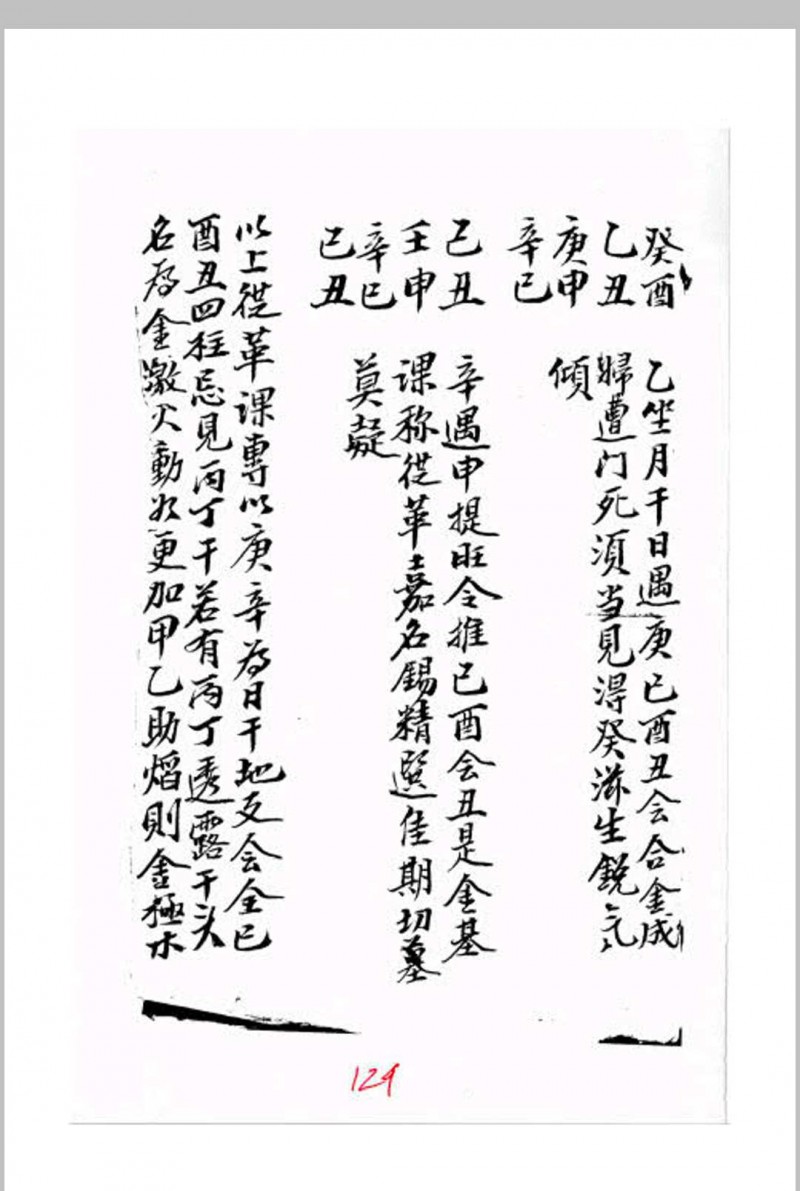 癸酉
乙丑
庚申
辛巳
乙坐月干日遇庚巳酉丑会合金成
婦遭门死須当見淂癸滋生銳气
傾
己丑
壬申
辛巳
己丑
辛遇申提旺令推巳酉会丑是金基
课称從革嘉名錫精選佳期切墓
莫疑
以上從革课專以庚辛为日干地支会全巳
酉丑四柱忌見丙丁干若有丙丁透露干头
名为金激火動如更加甲乙助焰則金極木
129